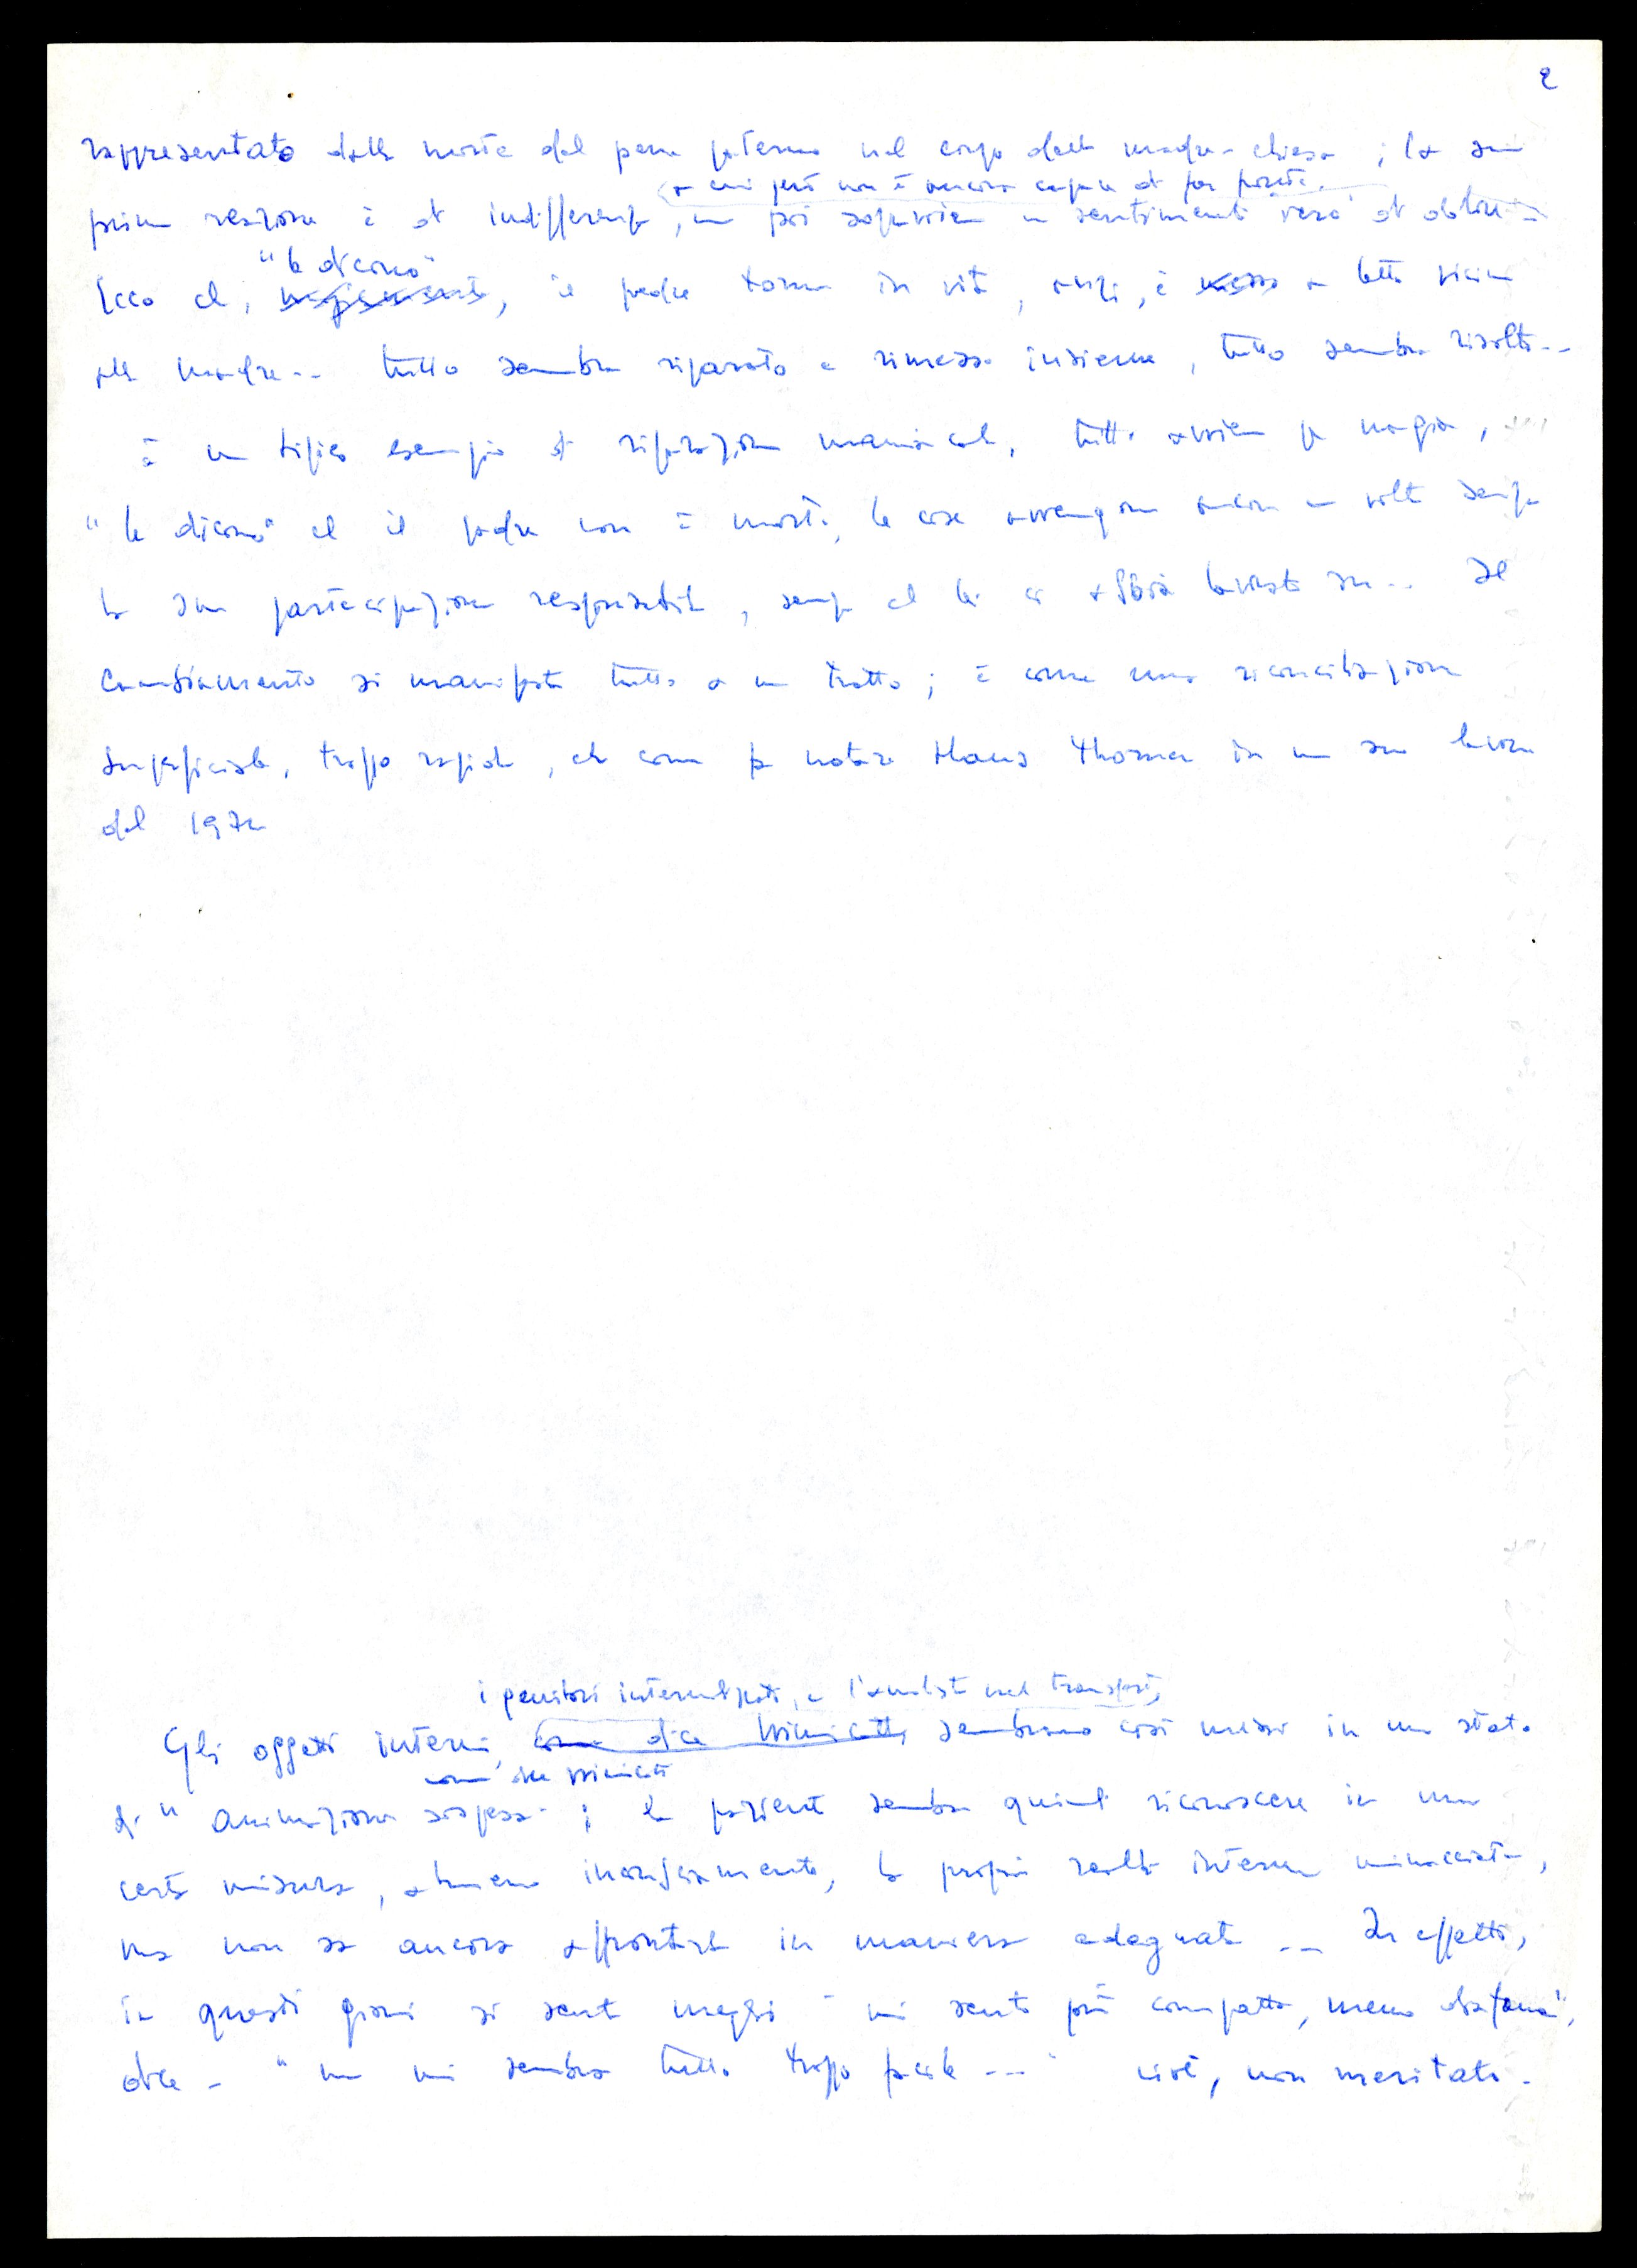 2
rappresentato dalla morte del pene paterno nel corpo della madre-chiesa ; la sua
a cui però non è ancora capace di far fronte.
prima reazione è di indifferenza, ma poi sopravviene un sentimento vero di dolore
"lo dicono"
Ecco che, magicamente, il padre torna in vita, anzi, è messo a letto vicino
alla madre.. tutto sembra riparato e rimesso insieme, tutto sembra risolto..
è un tipico esempio di riparazione maniacale, tutto avviene per magia,
"lo dicono" che il padre non è morto, le cose avvengono ancora una volta senza
la sua partecipazione responsabile, senza che lei ci abbia lavorato su... Il
cambiamento si manifesta tutto a un tratto; è come una riconciliazione
superficiale, troppo rapida, che come fa notare Hans Thorner in un suo lavoro
del
i genitori internalizzati, e l'analista nel transfert,
Gli oggetti interni, come dice Winnicott, sembrano così messi in uno stato
come dice Winnicott
di "animazione sospesa" ; la paziente sembra quindi riconoscere in una
certa misura, almeno inconsciamente, la propria realtà interna minacciata,
ma non sa ancora affrontarla in maniera adeguata .. In effetti,
in questi giorni si sente meglio "mi sento più compatta, meno diafana",
dice - "ma mi sembra tutto troppo facile ..." cioè, non meritato.